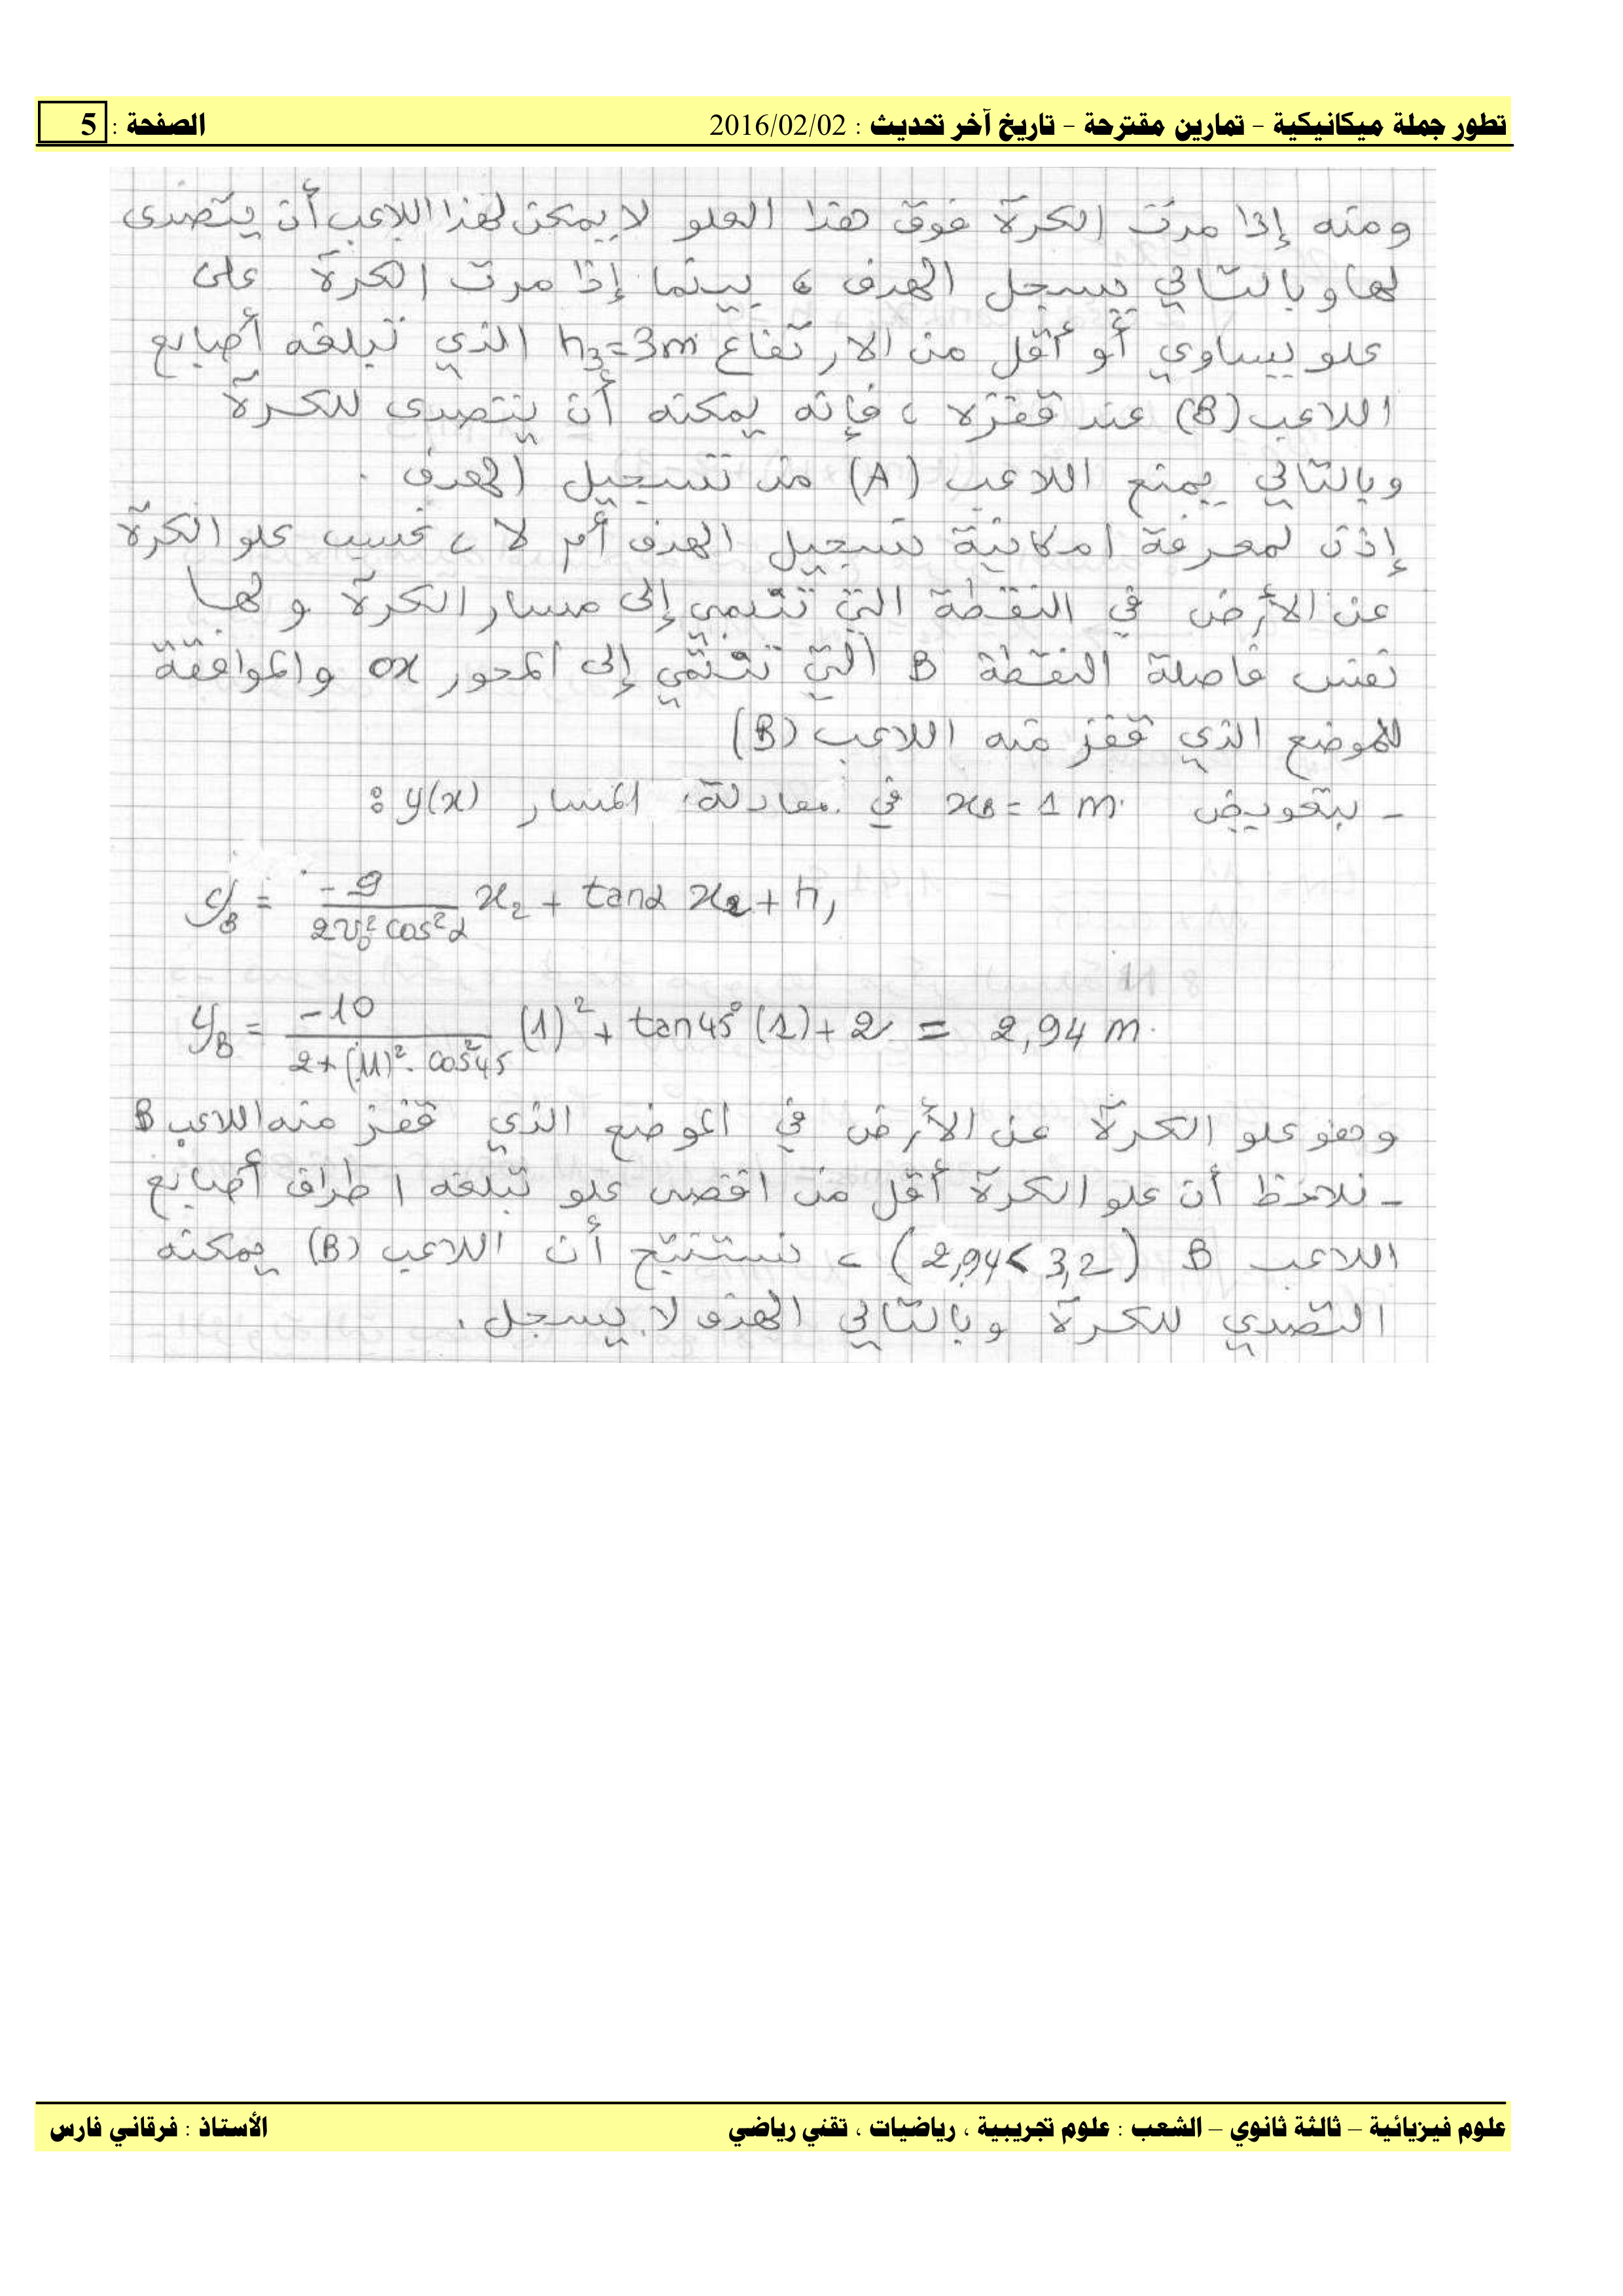 تطور جملة ميكانيكية - تمارين مقترحة - تاريخ آخر تحديث : 2016/02/02 الصفحة : 5
ومنه إذا مرت الكرة فوق هذا العلو لا يمكن لهذا اللاعب أن يتصدى
لها وبالتالي يسجل الهدف ، بينما إذا مرت الكرة على
علو يساوي أو أقل من الارتفاع h3=3m الذي تبلغه أصابع
اللاعب (B) عند قفزه ، فإنه يمكنه أن يتصدى للكرة
وبالتالي يمنع اللاعب (A) من تسجيل الهدف .
إذن لمعرفة امكانية تسجيل الهدف أم لا ، نحسب علو الكرة
عن الأرض في النقطة التي تنتمي إلى مسار الكرة ولها
نفس فاصلة النقطة B التي تنتمي إلى المحور ox والموافقة
للموضع الذي قفز منه اللاعب (B)
- بتعويض xB = 1 m في معادلة المسار y(x) :
yB = -g / 2v0² cos²α x2 + tanα x2 + h1
yB = -10 / 2×(11)². cos²45 (1)² + tan45° (1) + 2 = 2,94 m.
وهو علو الكرة عن الأرض في الموضع الذي قفز منه اللاعب B
- نلاحظ أن علو الكرة أقل من اقصى علو تبلغه اطراف أصابع
اللاعب B (2,94 < 3,2) ، نستنتج أن اللاعب (B) يمكنه
التصدي للكرة وبالتالي الهدف لا يسجل .
علوم فيزيائية – ثالثة ثانوي – الشعب : علوم تجريبية ، رياضيات ، تقني رياضي الأستاذ : فرقاني فارس